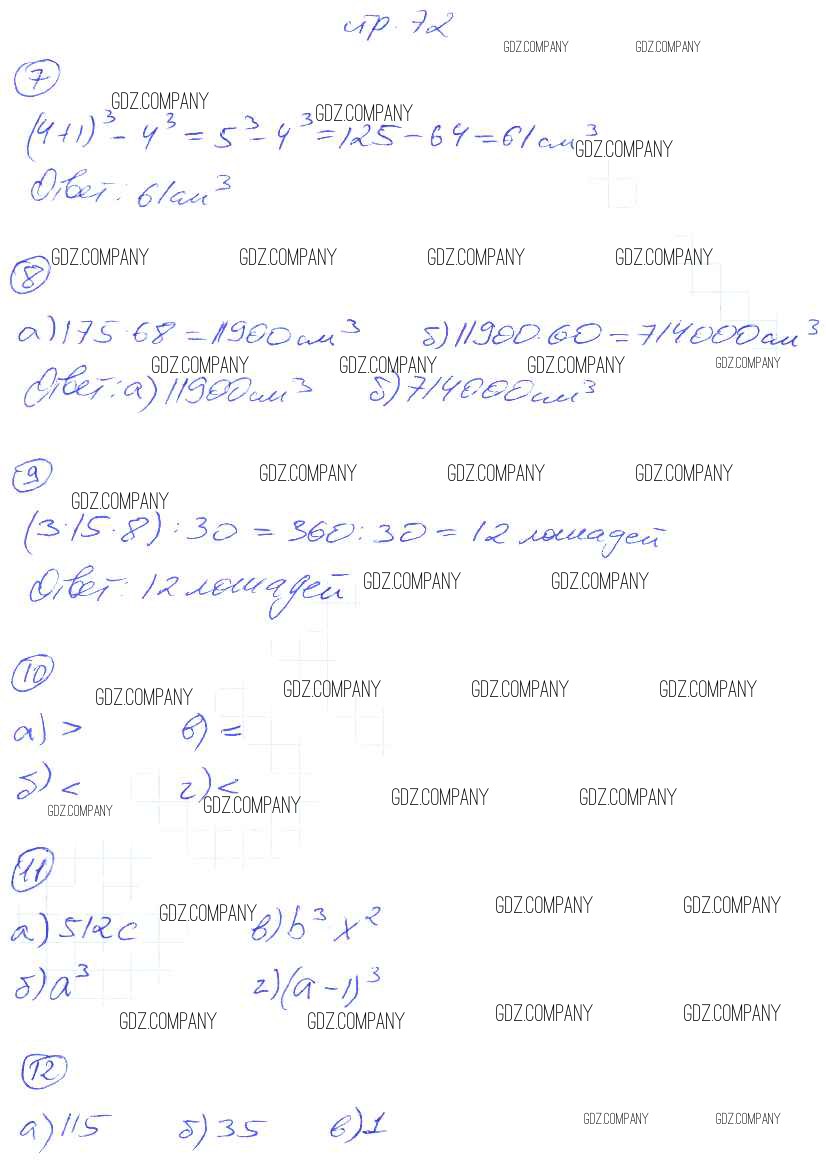 стр. 72
GDZ.COMPANY GDZ.COMPANY
7
GDZ.COMPANY GDZ.COMPANY
(4+1)³ - 4³ = 5³ - 4³ = 125 - 64 = 61 см³
GDZ.COMPANY
Ответ: 61 см³
GDZ.COMPANY GDZ.COMPANY GDZ.COMPANY GDZ.COMPANY
8
а) 175·68 = 11900 см³ б) 11900·60 = 714000 см³
GDZ.COMPANY GDZ.COMPANY GDZ.COMPANY GDZ.COMPANY
Ответ: а) 11900 см³ б) 714000 см³
9
GDZ.COMPANY GDZ.COMPANY GDZ.COMPANY
GDZ.COMPANY
(3·15·8) : 30 = 360 : 30 = 12 лошадей
Ответ: 12 лошадей
GDZ.COMPANY GDZ.COMPANY
10
GDZ.COMPANY GDZ.COMPANY GDZ.COMPANY GDZ.COMPANY
а) > в) =
б) < г) <
GDZ.COMPANY GDZ.COMPANY GDZ.COMPANY GDZ.COMPANY
11
а) 512c в) b³ x²
GDZ.COMPANY GDZ.COMPANY GDZ.COMPANY
б) a³ г) (a - 1)³
GDZ.COMPANY GDZ.COMPANY GDZ.COMPANY GDZ.COMPANY
12
а) 115 б) 35 в) 1
GDZ.COMPANY GDZ.COMPANY